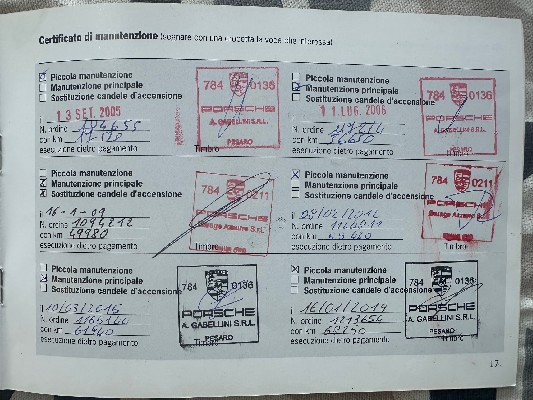 Certificato di manutenzione (segnare con una crocetta la voce che interessa)
Piccola manutenzione
Manutenzione principale
Sostituzione candele d'accensione
il 13 SET. 2005
N. ordine
con km
esecuzione dietro pagamento
784 0136
PORSCHE
A. GABELLINI S.R.L.
PESARO
Timbro
Piccola manutenzione
Manutenzione principale
Sostituzione candele d'accensione
il 11 LUG. 2006
N. ordine
con km
esecuzione dietro pagamento
784 0136
PORSCHE
A. GABELLINI S.R.L.
PESARO
Timbro
Piccola manutenzione
Manutenzione principale
Sostituzione candele d'accensione
il 16-1-09
N. ordine 1094212
con km 49980
esecuzione dietro pagamento
784 0211
PORSCHE
Timbro
Piccola manutenzione
Manutenzione principale
Sostituzione candele d'accensione
il
N. ordine
con km
esecuzione dietro pagamento
784 0211
PORSCHE
Timbro
Piccola manutenzione
Manutenzione principale
Sostituzione candele d'accensione
10/03/2016
N. ordine
con km 61960
esecuzione dietro pagamento
784 0136
PORSCHE
A. GABELLINI S.R.L.
PESARO
Timbro
Piccola manutenzione
Manutenzione principale
Sostituzione candele d'accensione
il 16/01/2019
N. ordine 1213656
con km 68250
esecuzione dietro pagamento
784 0136
PORSCHE
A. GABELLINI S.R.L.
PESARO
Timbro
17